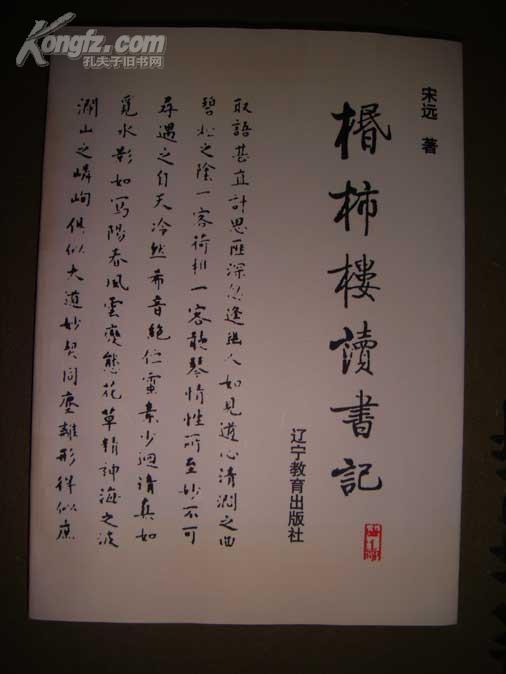 Kongfz.com
孔夫子旧书网
宋远 著
棔柿樓讀書記
辽宁教育出版社
取語甚直計思匪深忽逢幽人如見道心清澗之曲
碧松之陰一客荷樵一客聽琴情性所至妙不可
尋遇之自天冷然希音絶佇靈素少迴清真如
覓水影如寫陽春風雲變態花草精神海之波
瀾山之嶙峋俱似大道妙契同塵離形得似庶